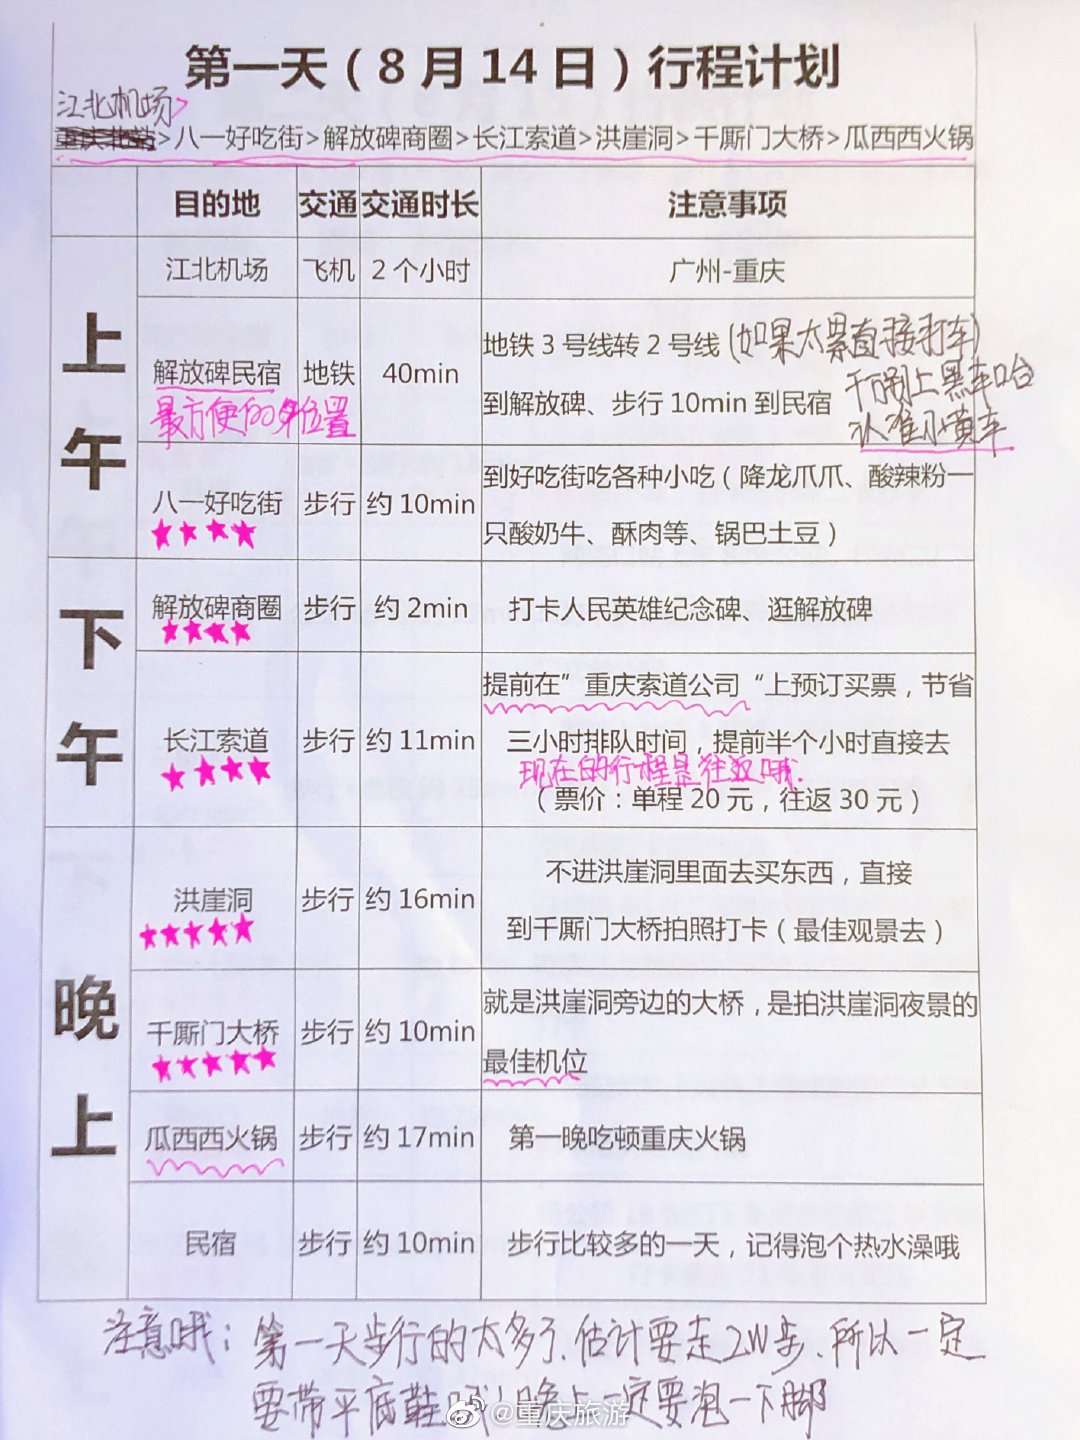 第一天（8月14日）行程计划
江北机场>
重庆北站>八一好吃街>解放碑商圈>长江索道>洪崖洞>千厮门大桥>瓜西西火锅
目的地 交通 交通时长 注意事项
上午
江北机场 飞机 2个小时 广州-重庆
解放碑民宿 地铁 40min
最方便的位置
地铁3号线转2号线(如果太累直接打车)
到解放碑、步行10min到民宿
千万别上黑车哈
认准小黄车
八一好吃街 步行 约10min
★★★★
到好吃街吃各种小吃（降龙爪爪、酸辣粉一
只酸奶牛、酥肉等、锅巴土豆）
下午
解放碑商圈 步行 约2min 打卡人民英雄纪念碑、逛解放碑
★★★★
长江索道 步行 约11min
★★★★
提前在”重庆索道公司“上预订买票，节省
三小时排队时间，提前半个小时直接去
现在的行程是往返哦.
（票价：单程20元，往返30元）
晚上
洪崖洞 步行 约16min
★★★★★
不进洪崖洞里面去买东西，直接
到千厮门大桥拍照打卡（最佳观景去）
千厮门大桥 步行 约10min
★★★★★
就是洪崖洞旁边的大桥，是拍洪崖洞夜景的
最佳机位
瓜西西火锅 步行 约17min 第一晚吃顿重庆火锅
民宿 步行 约10min 步行比较多的一天，记得泡个热水澡哦
注意哦：第一天步行的太多了、估计要走2W步、所以一定
要带平底鞋哦！晚上一定要泡一下脚
@重庆旅游